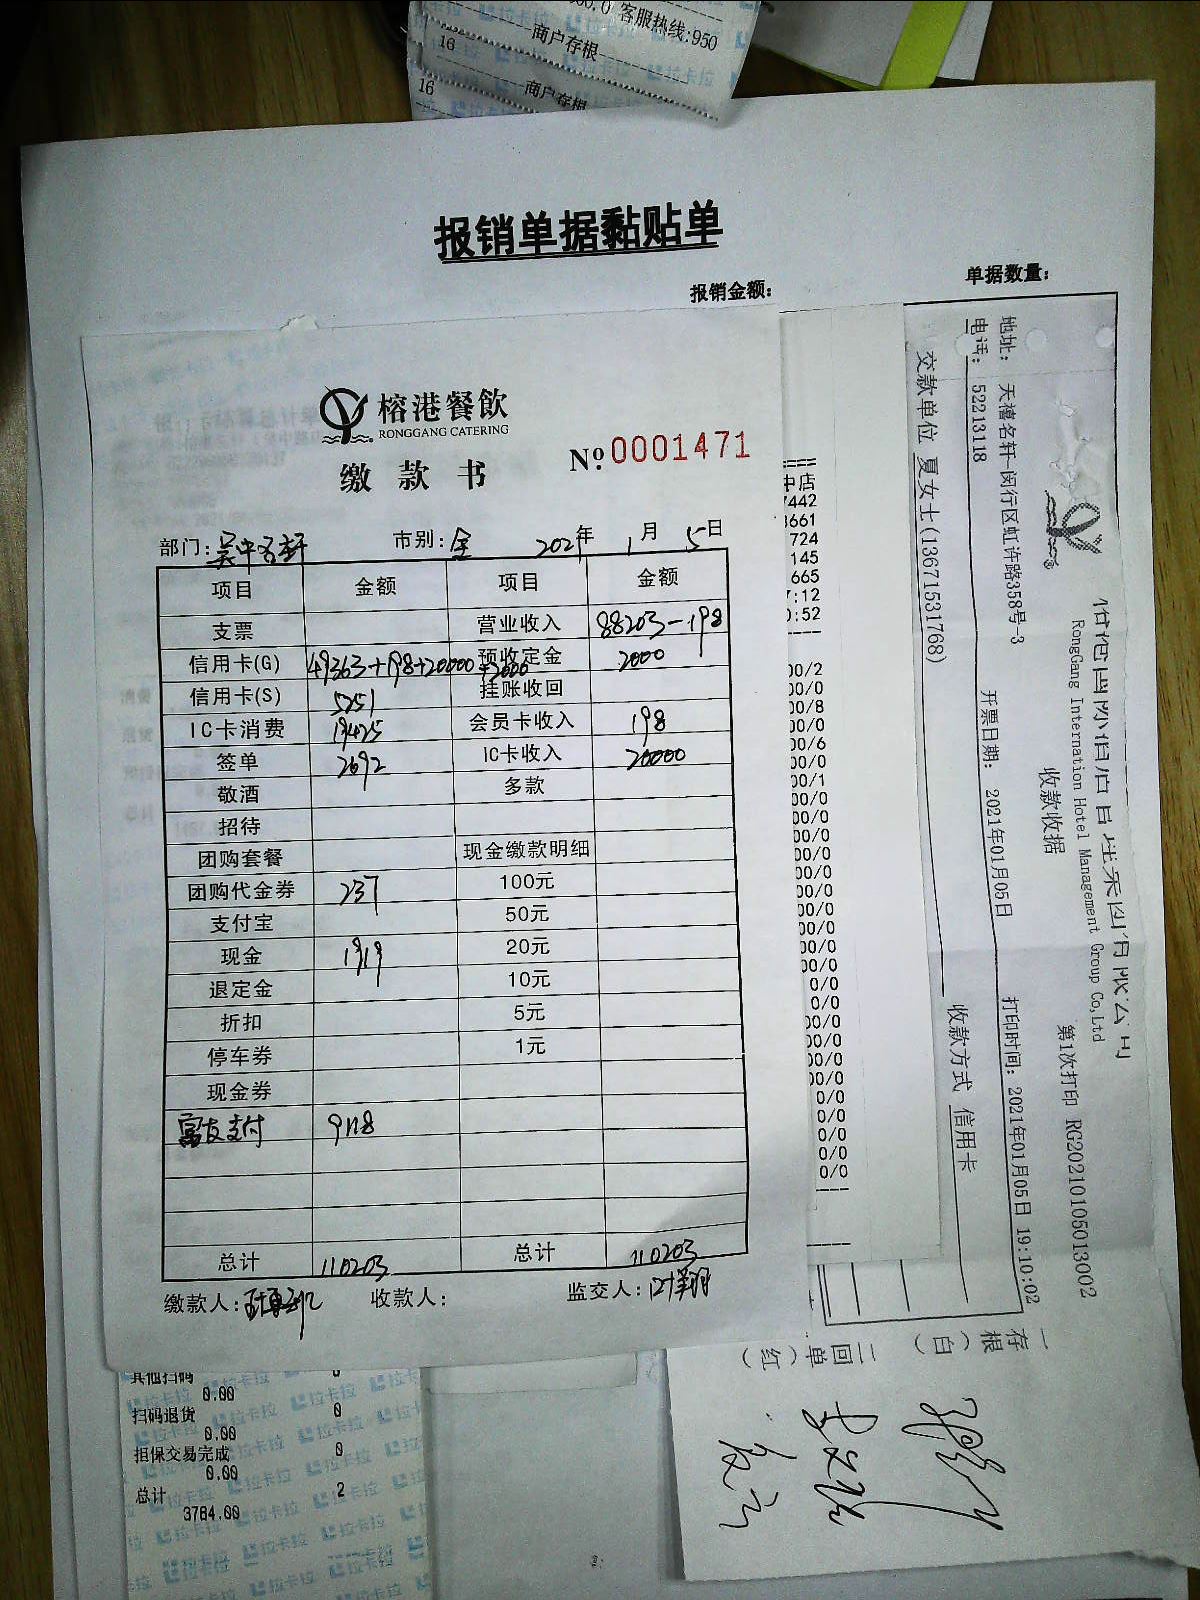 00.0 客服热线:950
16 商户存根
16 商户存根
报销单据黏贴单
报销金额:
单据数量:
榕港餐飲
RONGGANG CATERING
缴款书
№.0001471
部门:吴中名轩 市别:全 2021年 1月 5日
项目 金额 项目 金额
支票 营业收入 88203-198
信用卡(G) 49363+198+20000+2000 预收定金 2000
信用卡(S) 5251 挂账收回
IC卡消费 19425 会员卡收入 198
签单 2692 IC卡收入 20000
敬酒 多款
招待
团购套餐 现金缴款明细
团购代金券 237 100元
支付宝 50元
现金 1919 20元
退定金 10元
折扣 5元
停车券 1元
现金券
富友支付 9118
总计 110203 总计 110203
缴款人: 收款人: 监交人:叶翔
====
中店
7442
3661
724
145
665
7:12
0:52
----
00/2
00/0
00/8
00/0
00/6
00/0
00/1
00/0
00/0
00/0
00/0
00/0
00/0
00/0
00/0
00/0
00/0
0/0
0/0
00/0
00/0
00/0
00/0
0/0
0/0
0/0
0/0
0/0
----
RongGang International Hotel Management Group Co,Ltd
收款收据
第1次打印 RG20210105013002
地址: 天禧名轩-闵行区虹许路358号-3
电话: 52213118
开票日期: 2021年01月05日
打印时间: 2021年01月05日 19:10:02
交款单位 夏女士(13671531768)
收款方式 信用卡
一存根(白)
二回单(红)
其他扫码 0
0.00
扫码退货 0
0.00
担保交易完成 0
0.00
总计 2
3784.00
拉卡拉